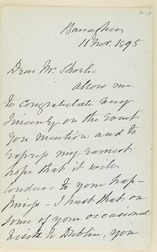 11 Nov. 1895
Dear Mr.
allow me
to congratulate very
sincerely on the event
you mention and to
express my earnest
hope that it will
conduce to your hap-
piness - I trust that on
some of your occasional
visits to Dublin, you